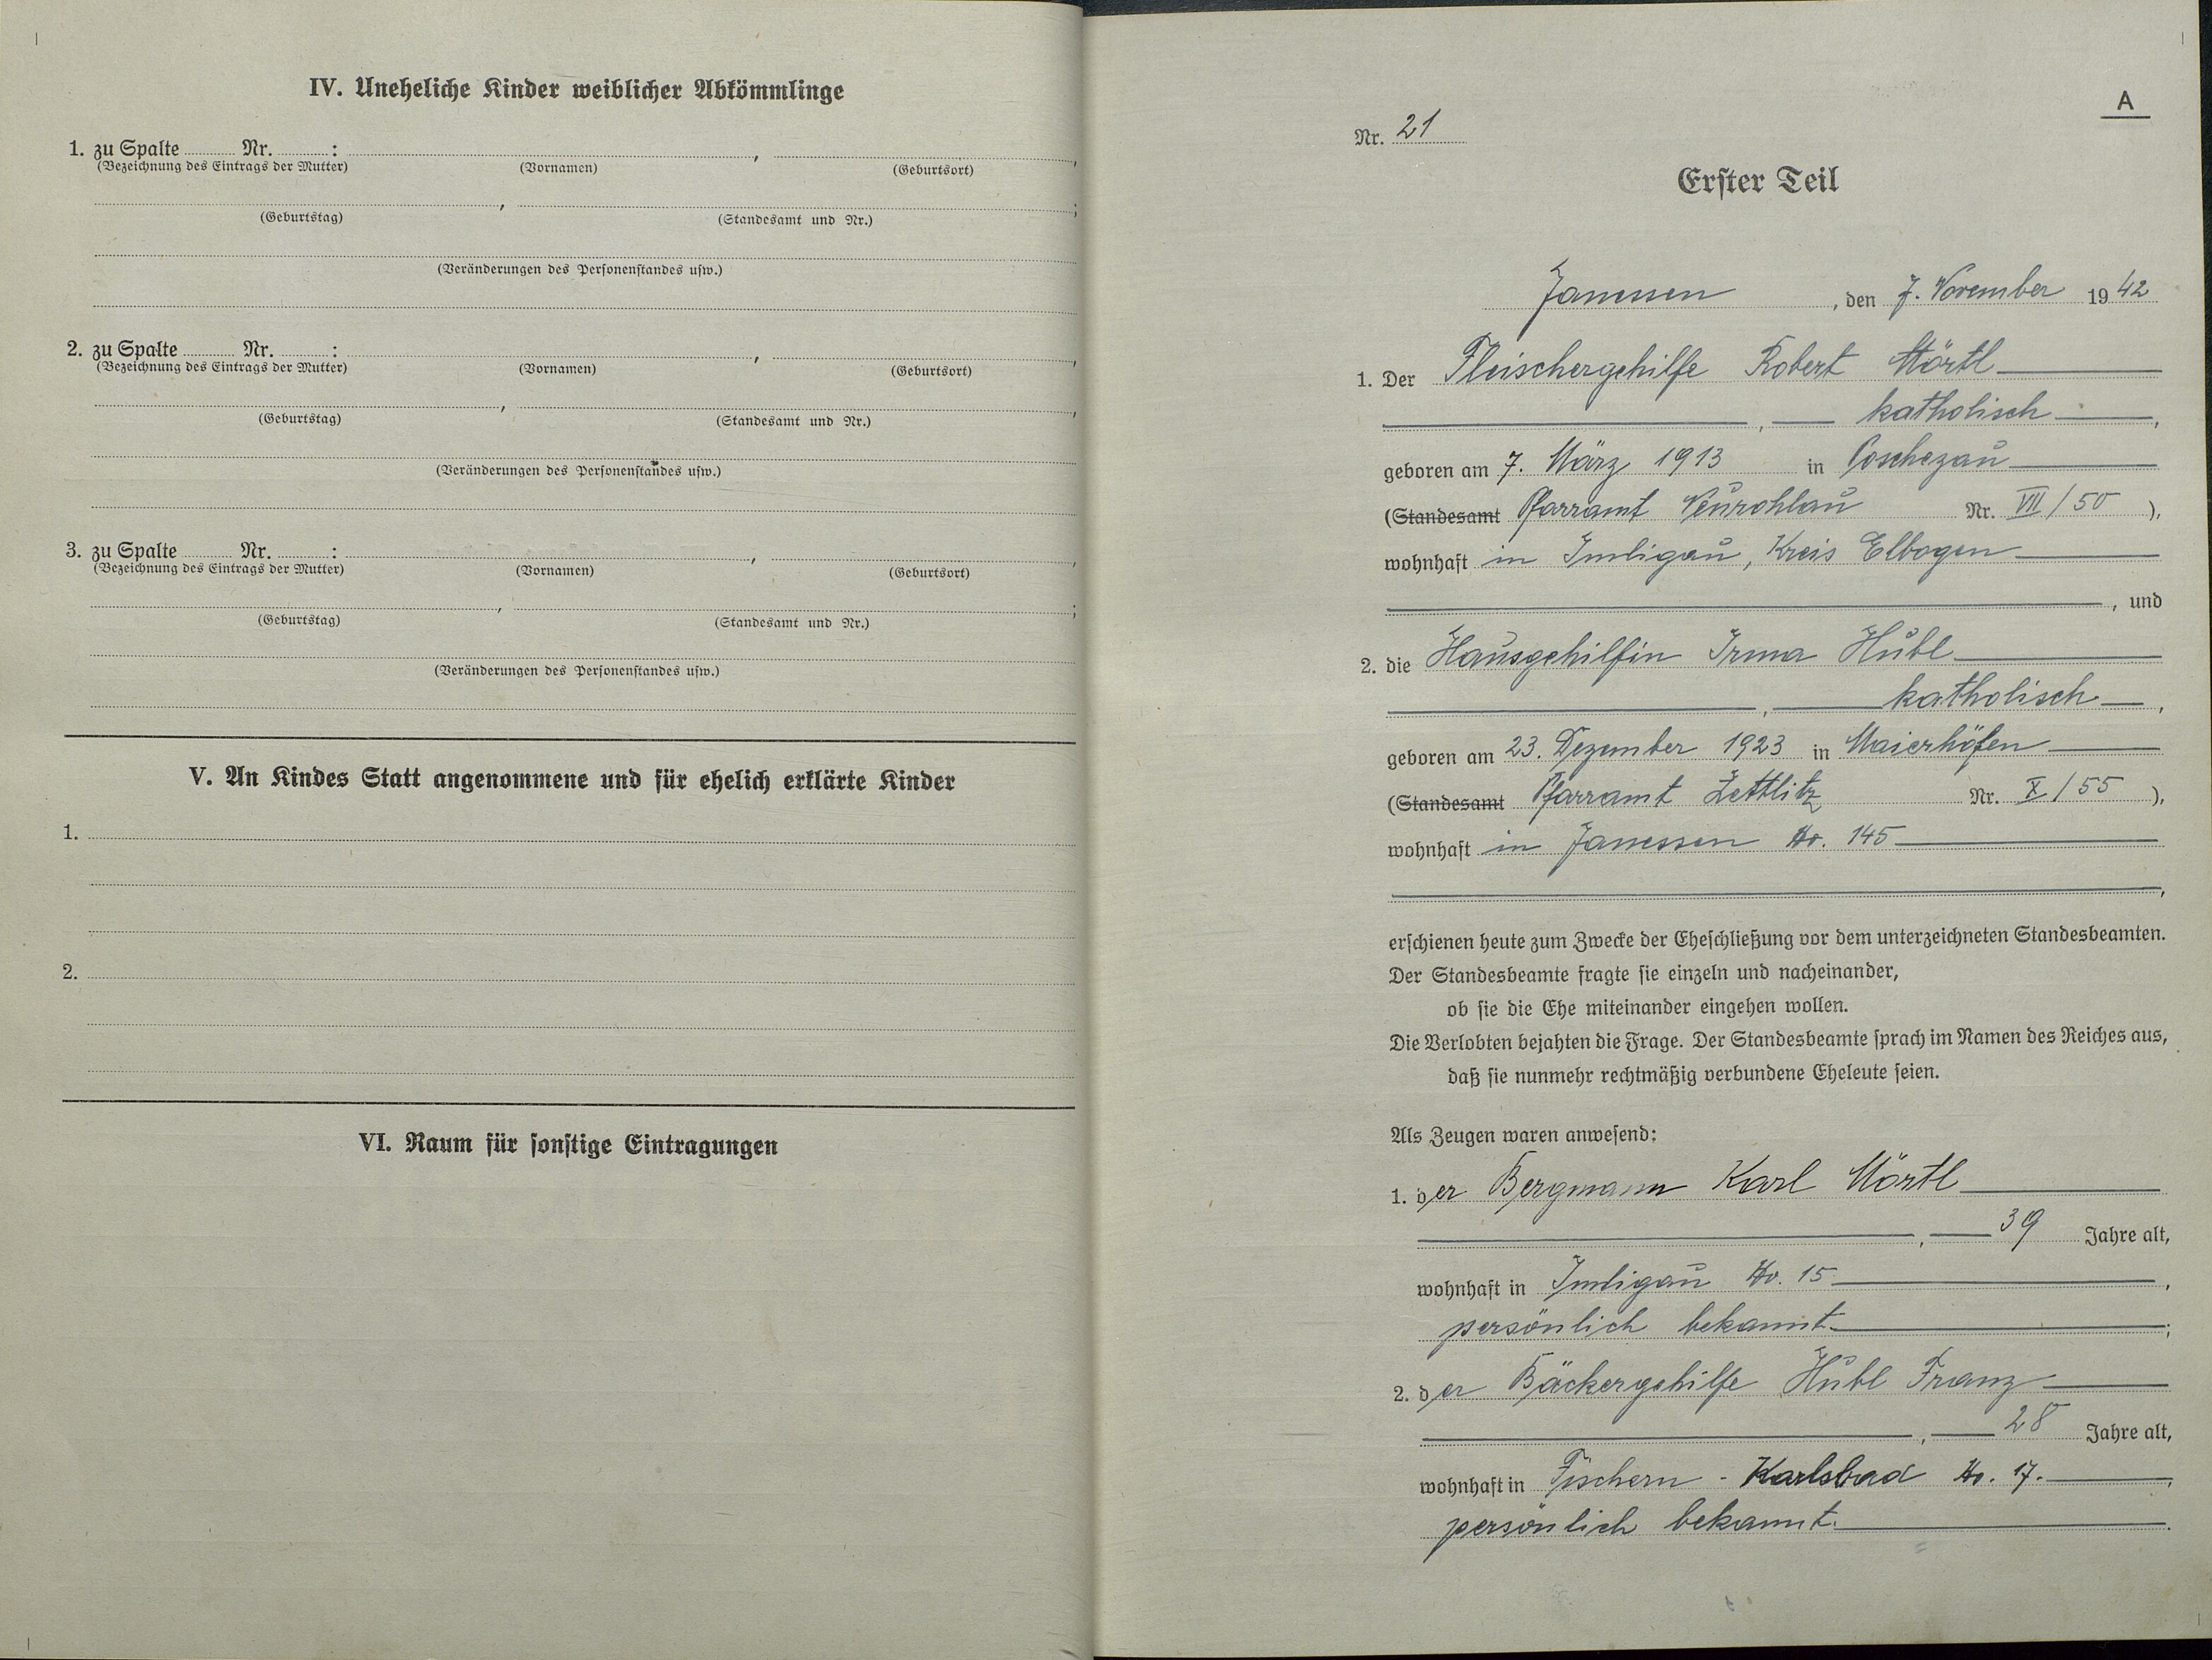 IV. Uneheliche Kinder weiblicher Abkömmlinge
1. zu Spalte ........ Nr. ........ : ........ , ........ ,
(Bezeichnung des Eintrags der Mutter) (Vornamen) (Geburtsort)
........ , ........ ;
(Geburtstag) (Standesamt und Nr.)
(Veränderungen des Personenstandes usw.)
2. zu Spalte ........ Nr. ........ : ........ , ........ ,
(Bezeichnung des Eintrags der Mutter) (Vornamen) (Geburtsort)
........ , ........ ,
(Geburtstag) (Standesamt und Nr.)
(Veränderungen des Personenstandes usw.)
3. zu Spalte ........ Nr. ........ : ........ , ........ ,
(Bezeichnung des Eintrags der Mutter) (Vornamen) (Geburtsort)
........ , ........ ;
(Geburtstag) (Standesamt und Nr.)
(Veränderungen des Personenstandes usw.)
V. An Kindes Statt angenommene und für ehelich erklärte Kinder
1.
2.
VI. Raum für sonstige Eintragungen
A
Nr. 21
Erster Teil
Janessen, den 7. November 1942
1. Der Fleischergehilfe Robert Mörtl
, katholisch ,
geboren am 7. März 1913 in Poschezau
(Standesamt Pfarramt Neurohlau Nr. VII/50 ),
wohnhaft in Imligau, Kreis Elbogen
, und
2. die Hausgehilfin Irma Hübl
, katholisch ,
geboren am 23. Dezember 1923 in Maierhöfen
(Standesamt Pfarramt Zettlitz Nr. X/55 ),
wohnhaft in Janessen No. 145
,
erschienen heute zum Zwecke der Eheschließung vor dem unterzeichneten Standesbeamten.
Der Standesbeamte fragte sie einzeln und nacheinander,
ob sie die Ehe miteinander eingehen wollen.
Die Verlobten bejahten die Frage. Der Standesbeamte sprach im Namen des Reiches aus,
daß sie nunmehr rechtmäßig verbundene Eheleute seien.
Als Zeugen waren anwesend:
1. der Bergmann Karl Mörtl
, 39 Jahre alt,
wohnhaft in Imligau No. 15 ,
persönlich bekannt ;
2. der Bäckergehilfe Hübl Franz
, 28 Jahre alt,
wohnhaft in Fischern - Karlsbad No. 17. ,
persönlich bekannt.